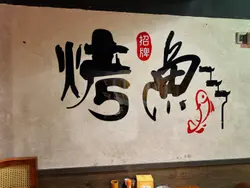 招牌
烤鱼